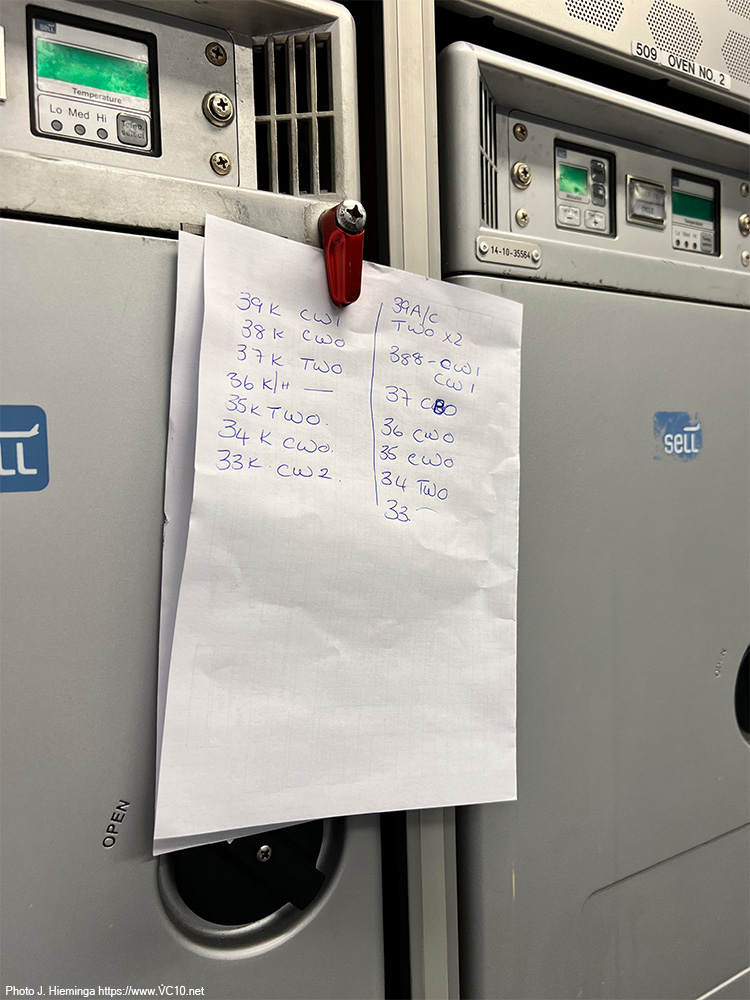 Temperature
Lo Med Hi
Temp. select
509 OVEN NO. 2
Lo Med Hi
14-10-35564
39K CW1
38K CW0
37K TWO
36K/H —
35K TWO.
34K CWO.
33K. CW2.
39A/C
TWO x2
388-CW1
CW1
37 CBO
36 CWO
35 CWO
34 TWO
33. —
sell
OPEN
OPEN
Photo J. Hieminga https://www.VC10.net